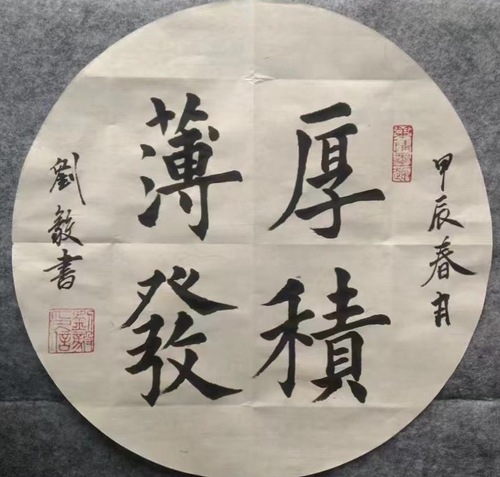 甲辰春月
厚積
薄發
劉毅書